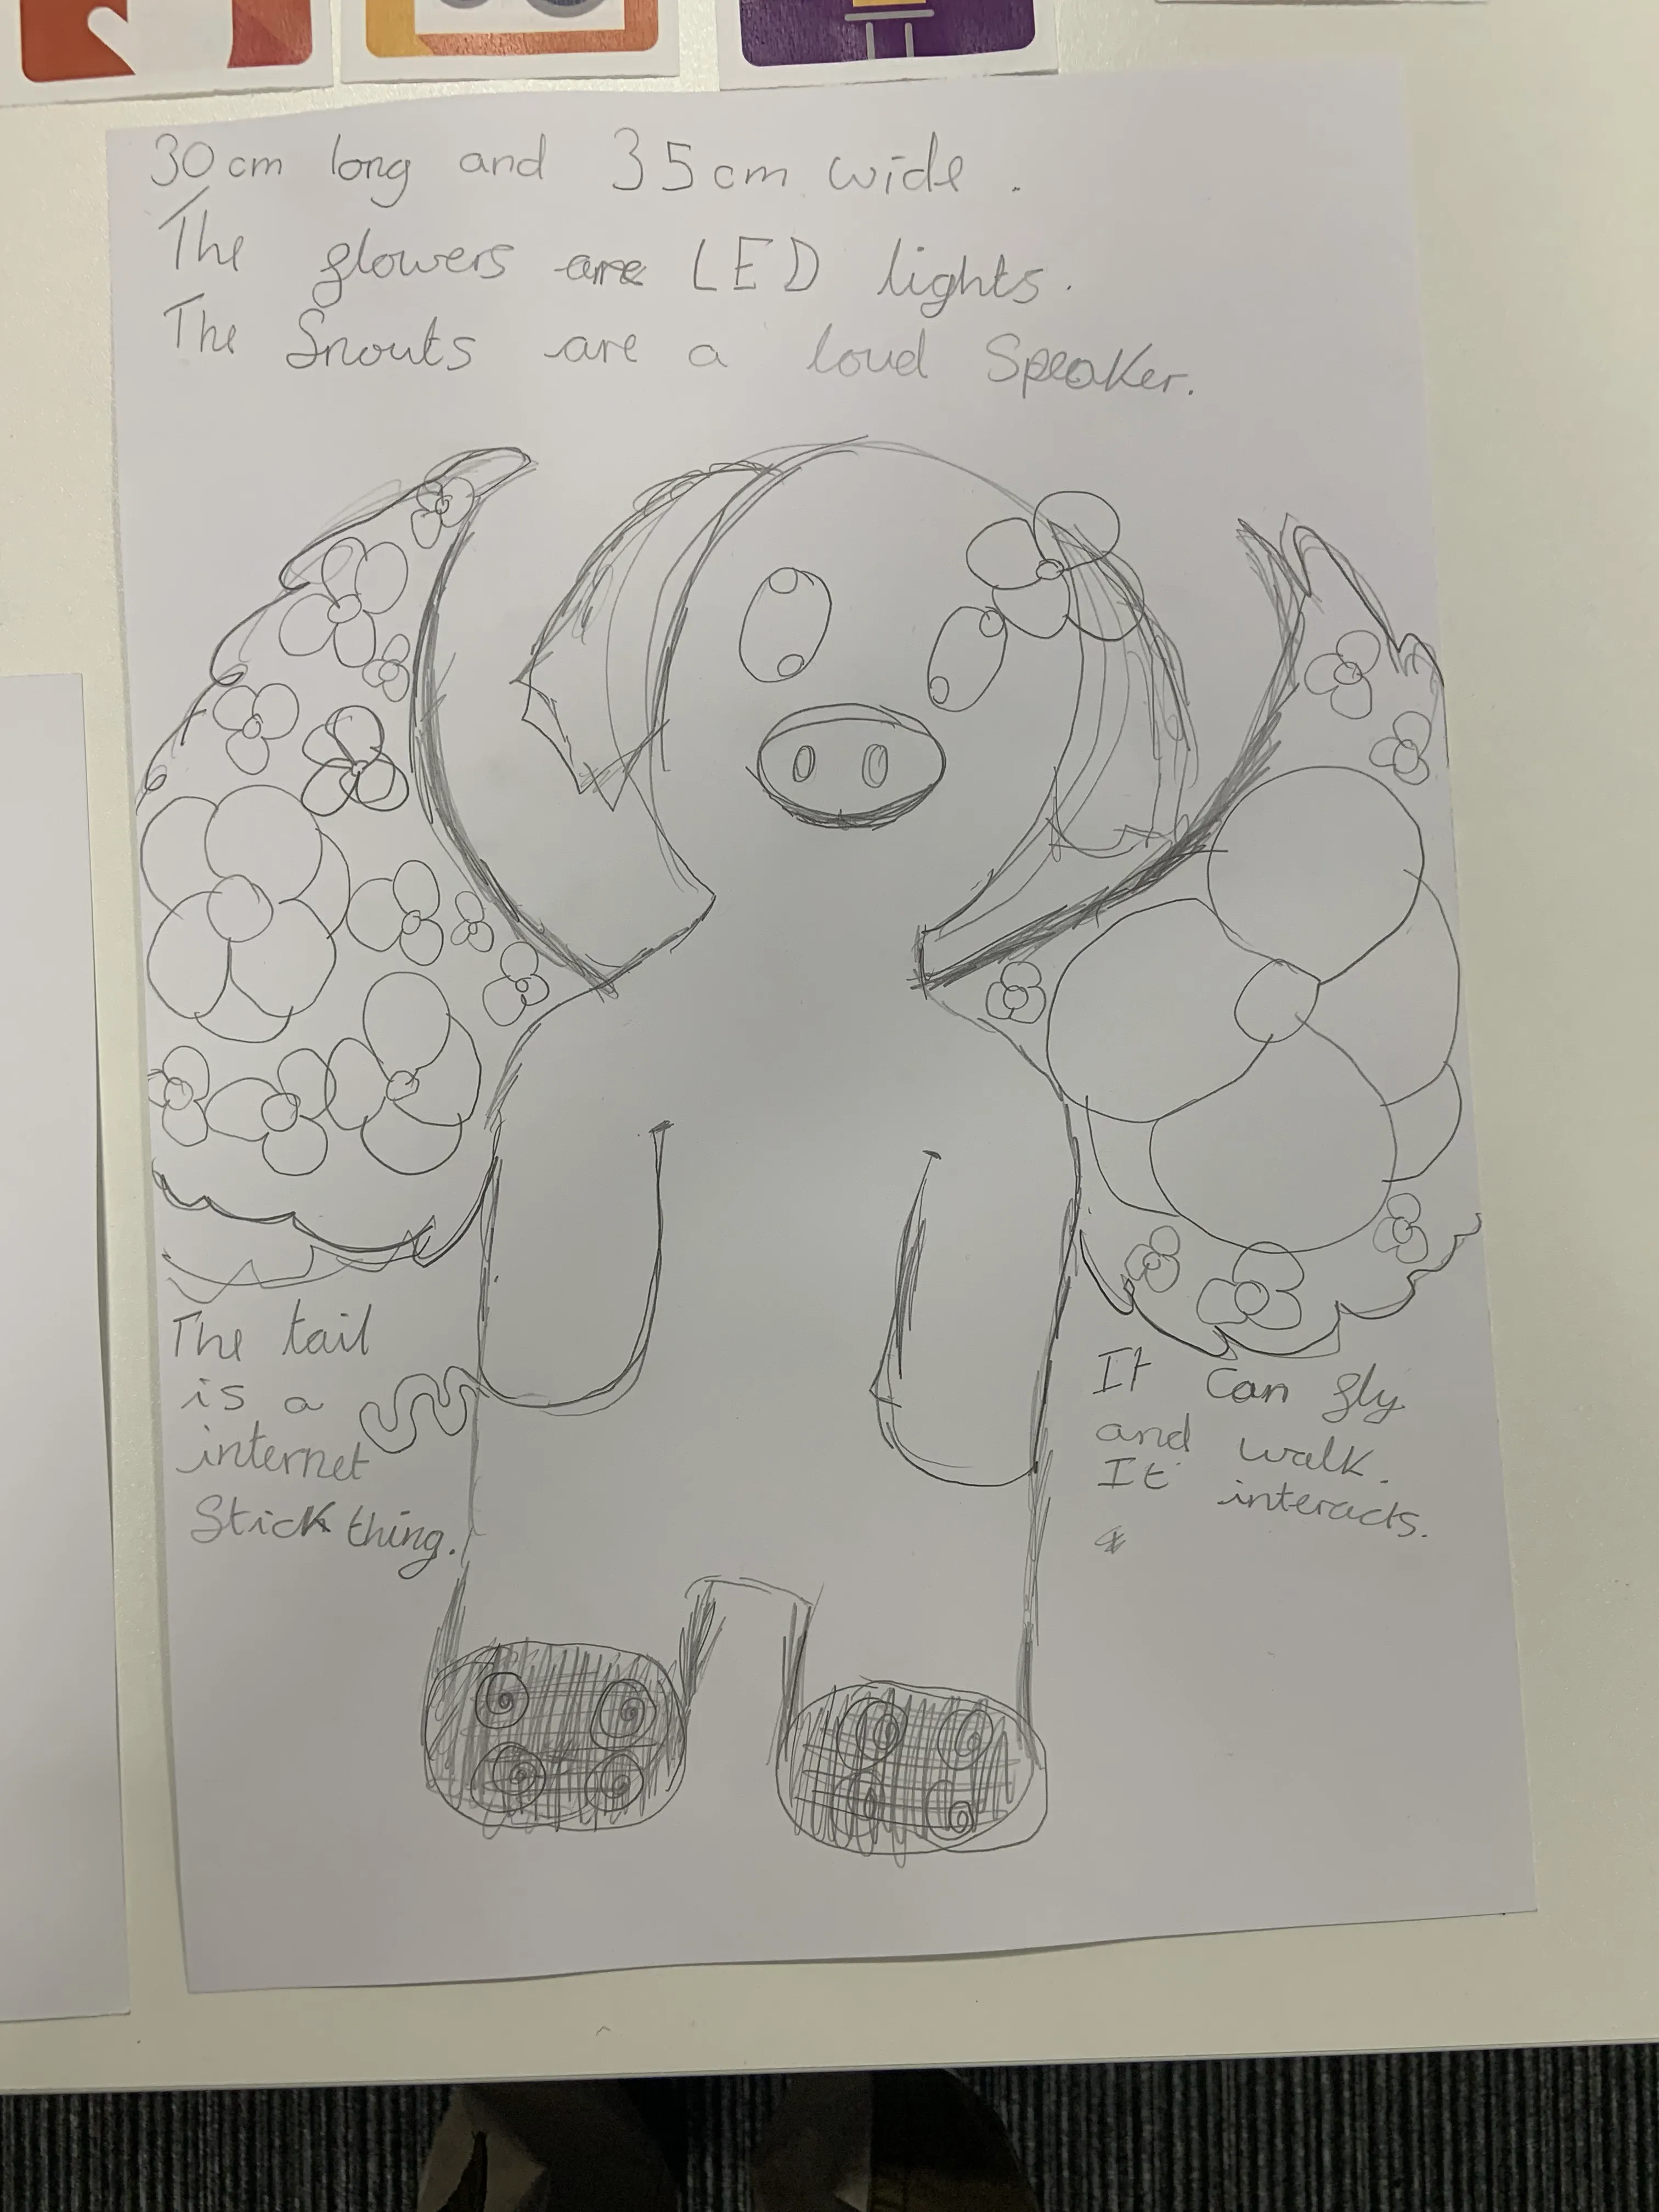 30cm long and 35cm wide.
The flowers are LED lights.
The Snouts are a loud Speaker.
The tail
is a
internet
Stick thing.
It can fly
and walk.
It interacts.